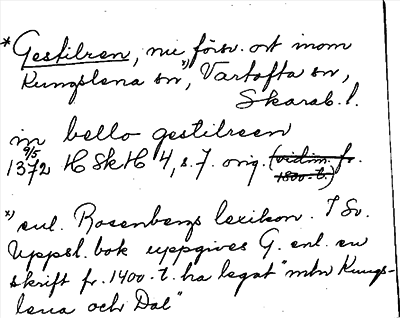 * Gestilren, nu försv. ort inom
Kungslena sn *), Vartofta sn,
Skarab. l.
in bello gestilreen
9/5
1372 HSkH 4, s. 7. orig. (vidim. fr.
1800-t.)
*) enl. Rosenbergs lexikon. I Sv.
Uppsl. bok uppgives G. enl. en
skrift fr. 1400-t. ha legat "mln Kungs-
lena och Dal"